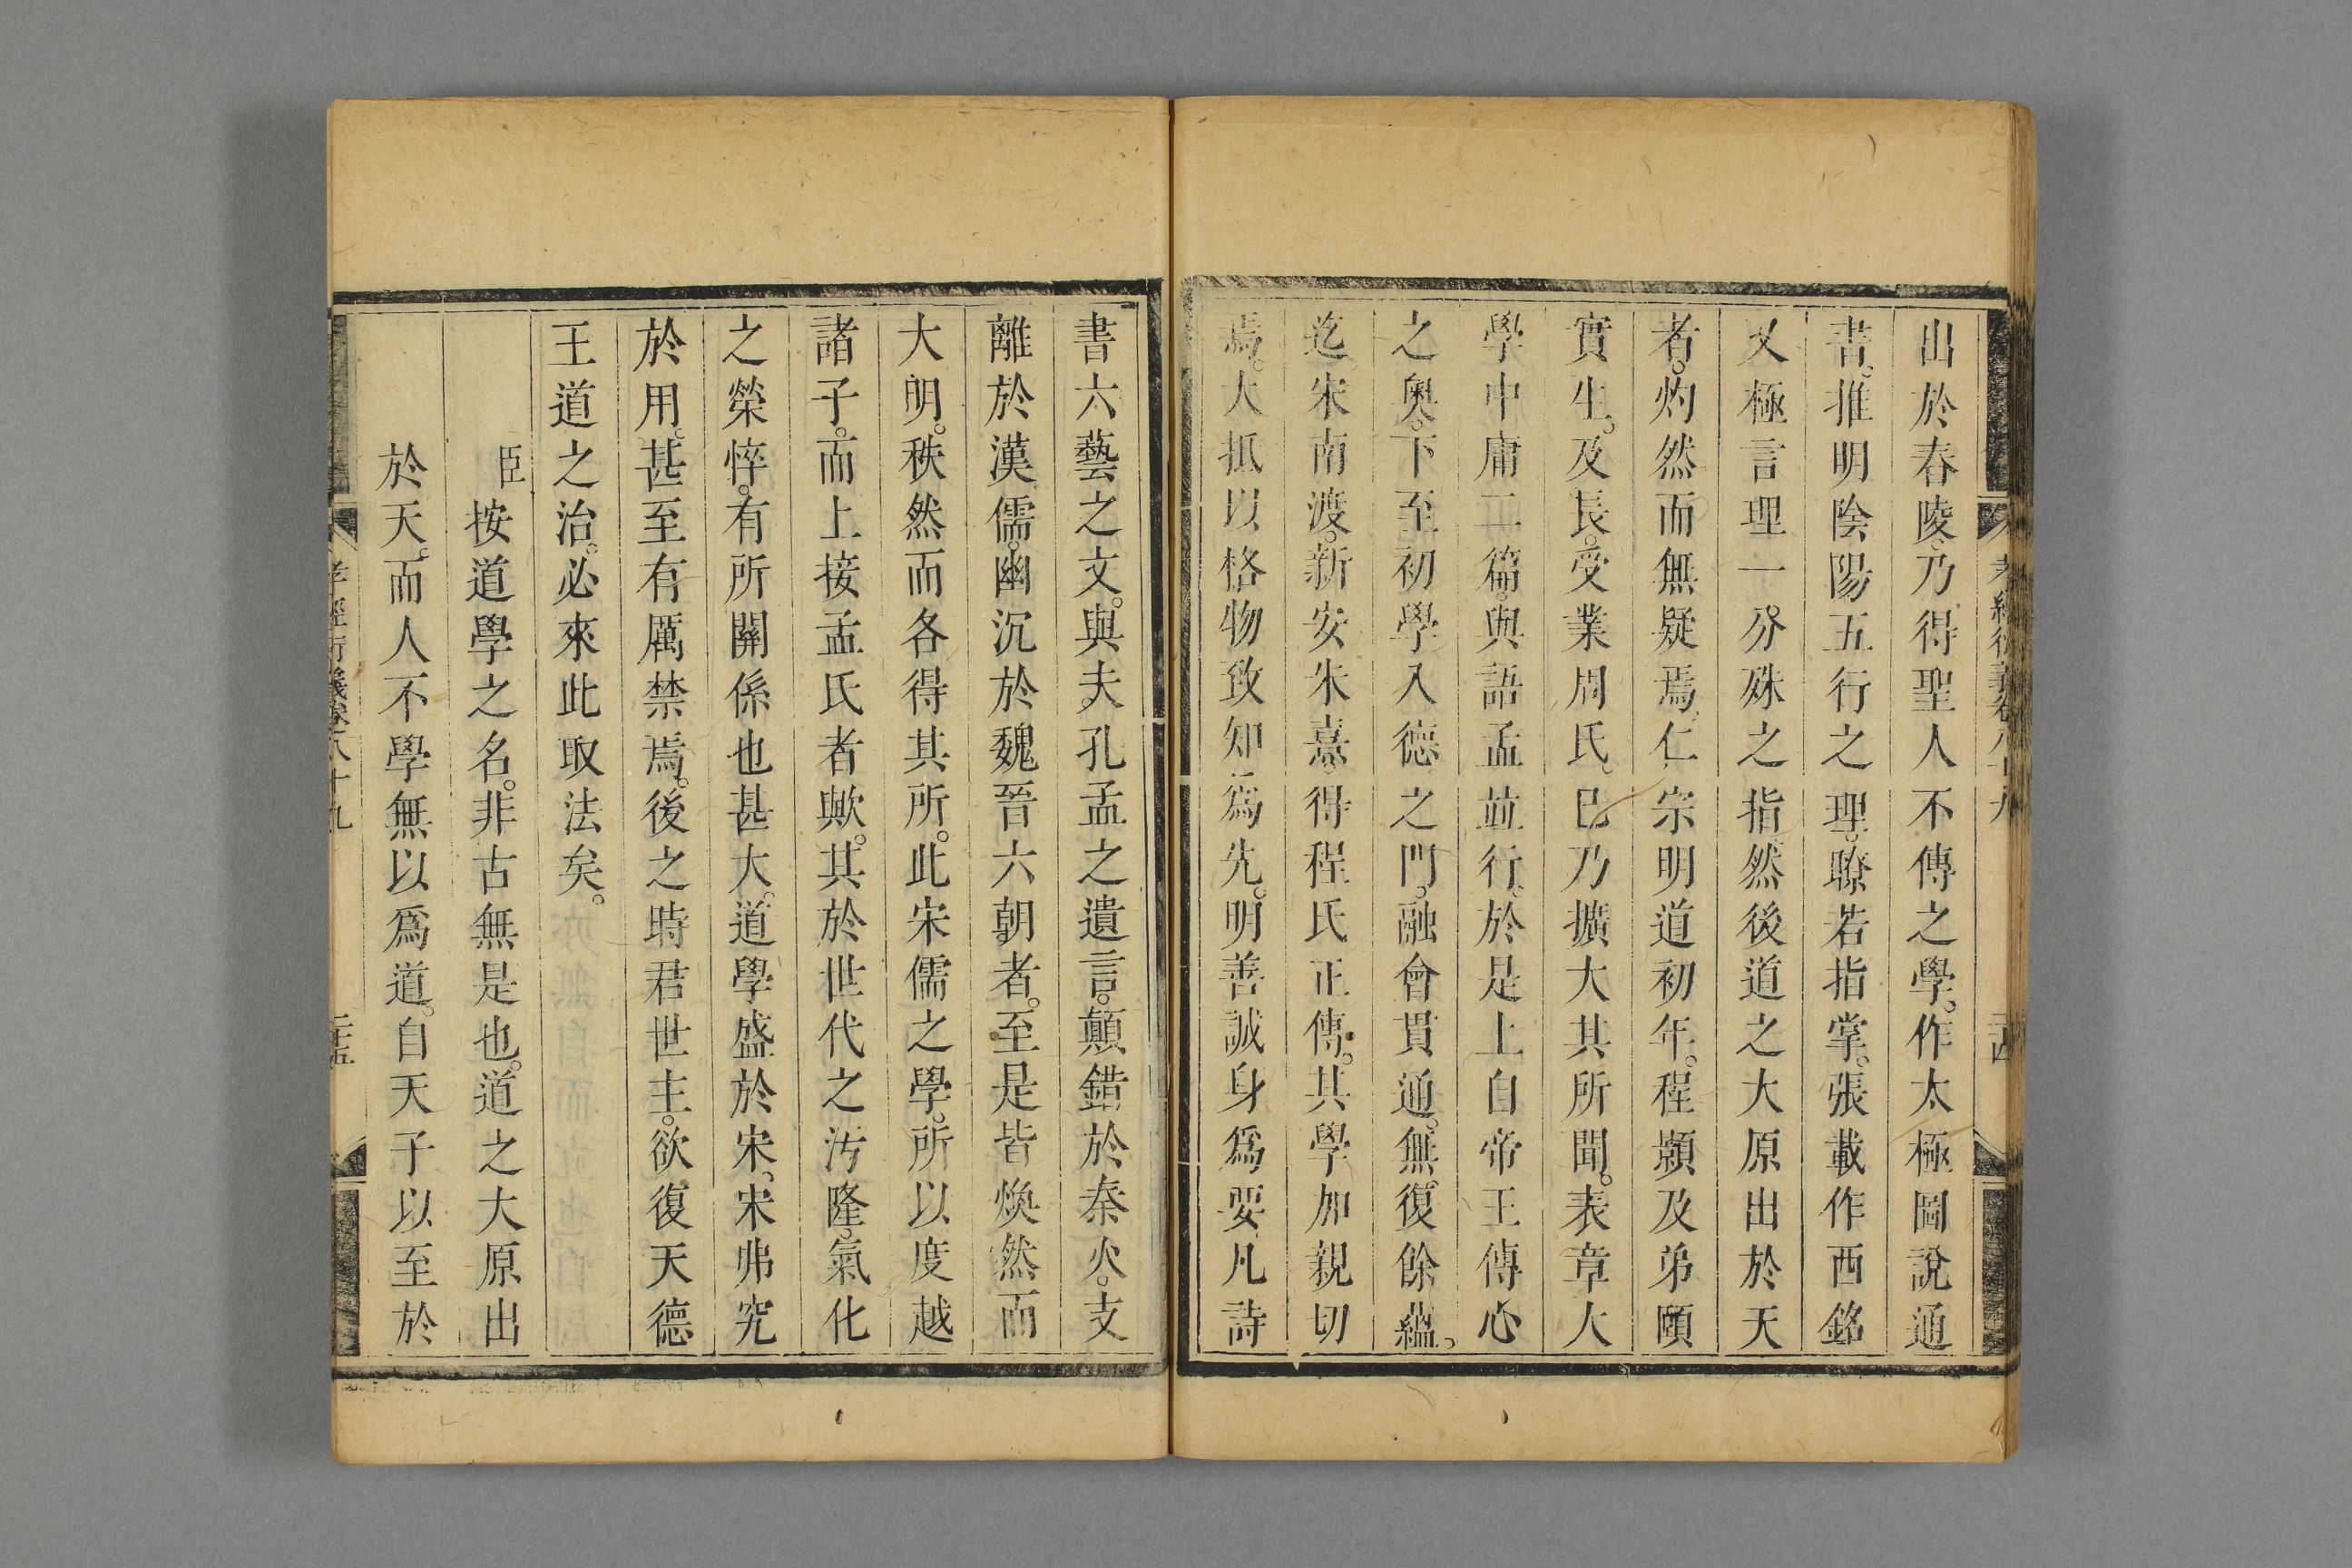 孝經衍義卷八十九
出於舂陵。乃得聖人不傳之學。作太極圖說通
書。推明陰陽五行之理。瞭若指掌。張載作西銘
又極言理一分殊之指。然後道之大原出於天
者。灼然而無疑焉。仁宗明道初年。程顥及弟頤
實生。及長。受業周氏。已乃擴大其所聞。表章大
學中庸二篇。與語孟並行。於是上自帝王傳心
之奧。下至初學入德之門。融會貫通。無復餘蘊。
迄宋南渡。新安朱熹。得程氏正傳。其學加親切
焉。大抵以格物致知爲先。明善誠身爲要。凡詩
書六藝之文。與夫孔孟之遺言。顛錯於秦火。支
離於漢儒。幽沉於魏晉六朝者。至是皆煥然而
大明。秩然而各得其所。此宋儒之學。所以度越
諸子。而上接孟氏者歟。其於世代之汚隆。氣化
之榮悴。有所關係也甚大。道學盛於宋。宋弗究
於用。甚至有厲禁焉。後之時君世主。欲復天德
王道之治。必來此取法矣。
臣按道學之名。非古無是也。道之大原出
於天。而人不學無以爲道。自天子以至於
孝經衍義卷八十九